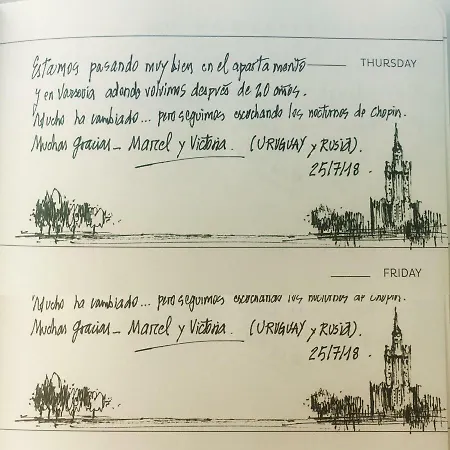 Estamos pasando muy bien en el apartamento
THURSDAY
y en Varsovia adonde volvimos después de 20 años.
Mucho ha cambiado... pero seguimos escuchando los nocturnos de Chopin.
Muchas gracias - Marcel y Victoria. (URUGUAY y RUSIA).
25/7/18.
FRIDAY
Mucho ha cambiado... pero seguimos escuchando los nocturnos de Chopin.
Muchas gracias - Marcel y Victoria. (URUGUAY y RUSIA).
25/7/18.